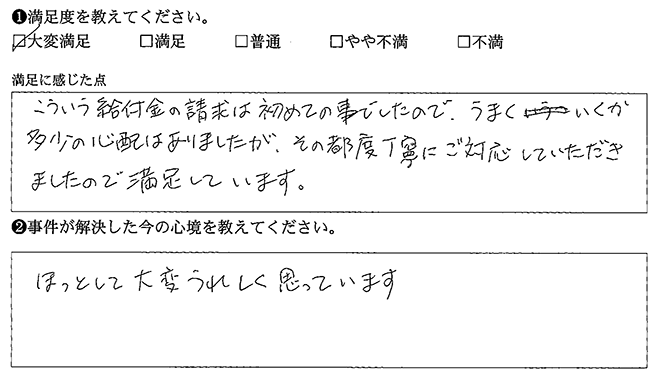 ❶満足度を教えてください。
☑大変満足 □満足 □普通 □やや不満 □不満
満足に感じた点
こういう給付金の請求は初めての事でしたので、うまくいくか
多少の心配はありましたが、その都度丁寧にご対応していただき
ましたので満足しています。
❷事件が解決した今の心境を教えてください。
ほっとして大変うれしく思っています